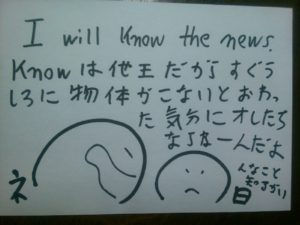 I will know the news.
Knowは他王だからすぐう
しろに物体がこないとおわっ
た気分にオレたち
なるなーんだよ
んなこと
ネ 日